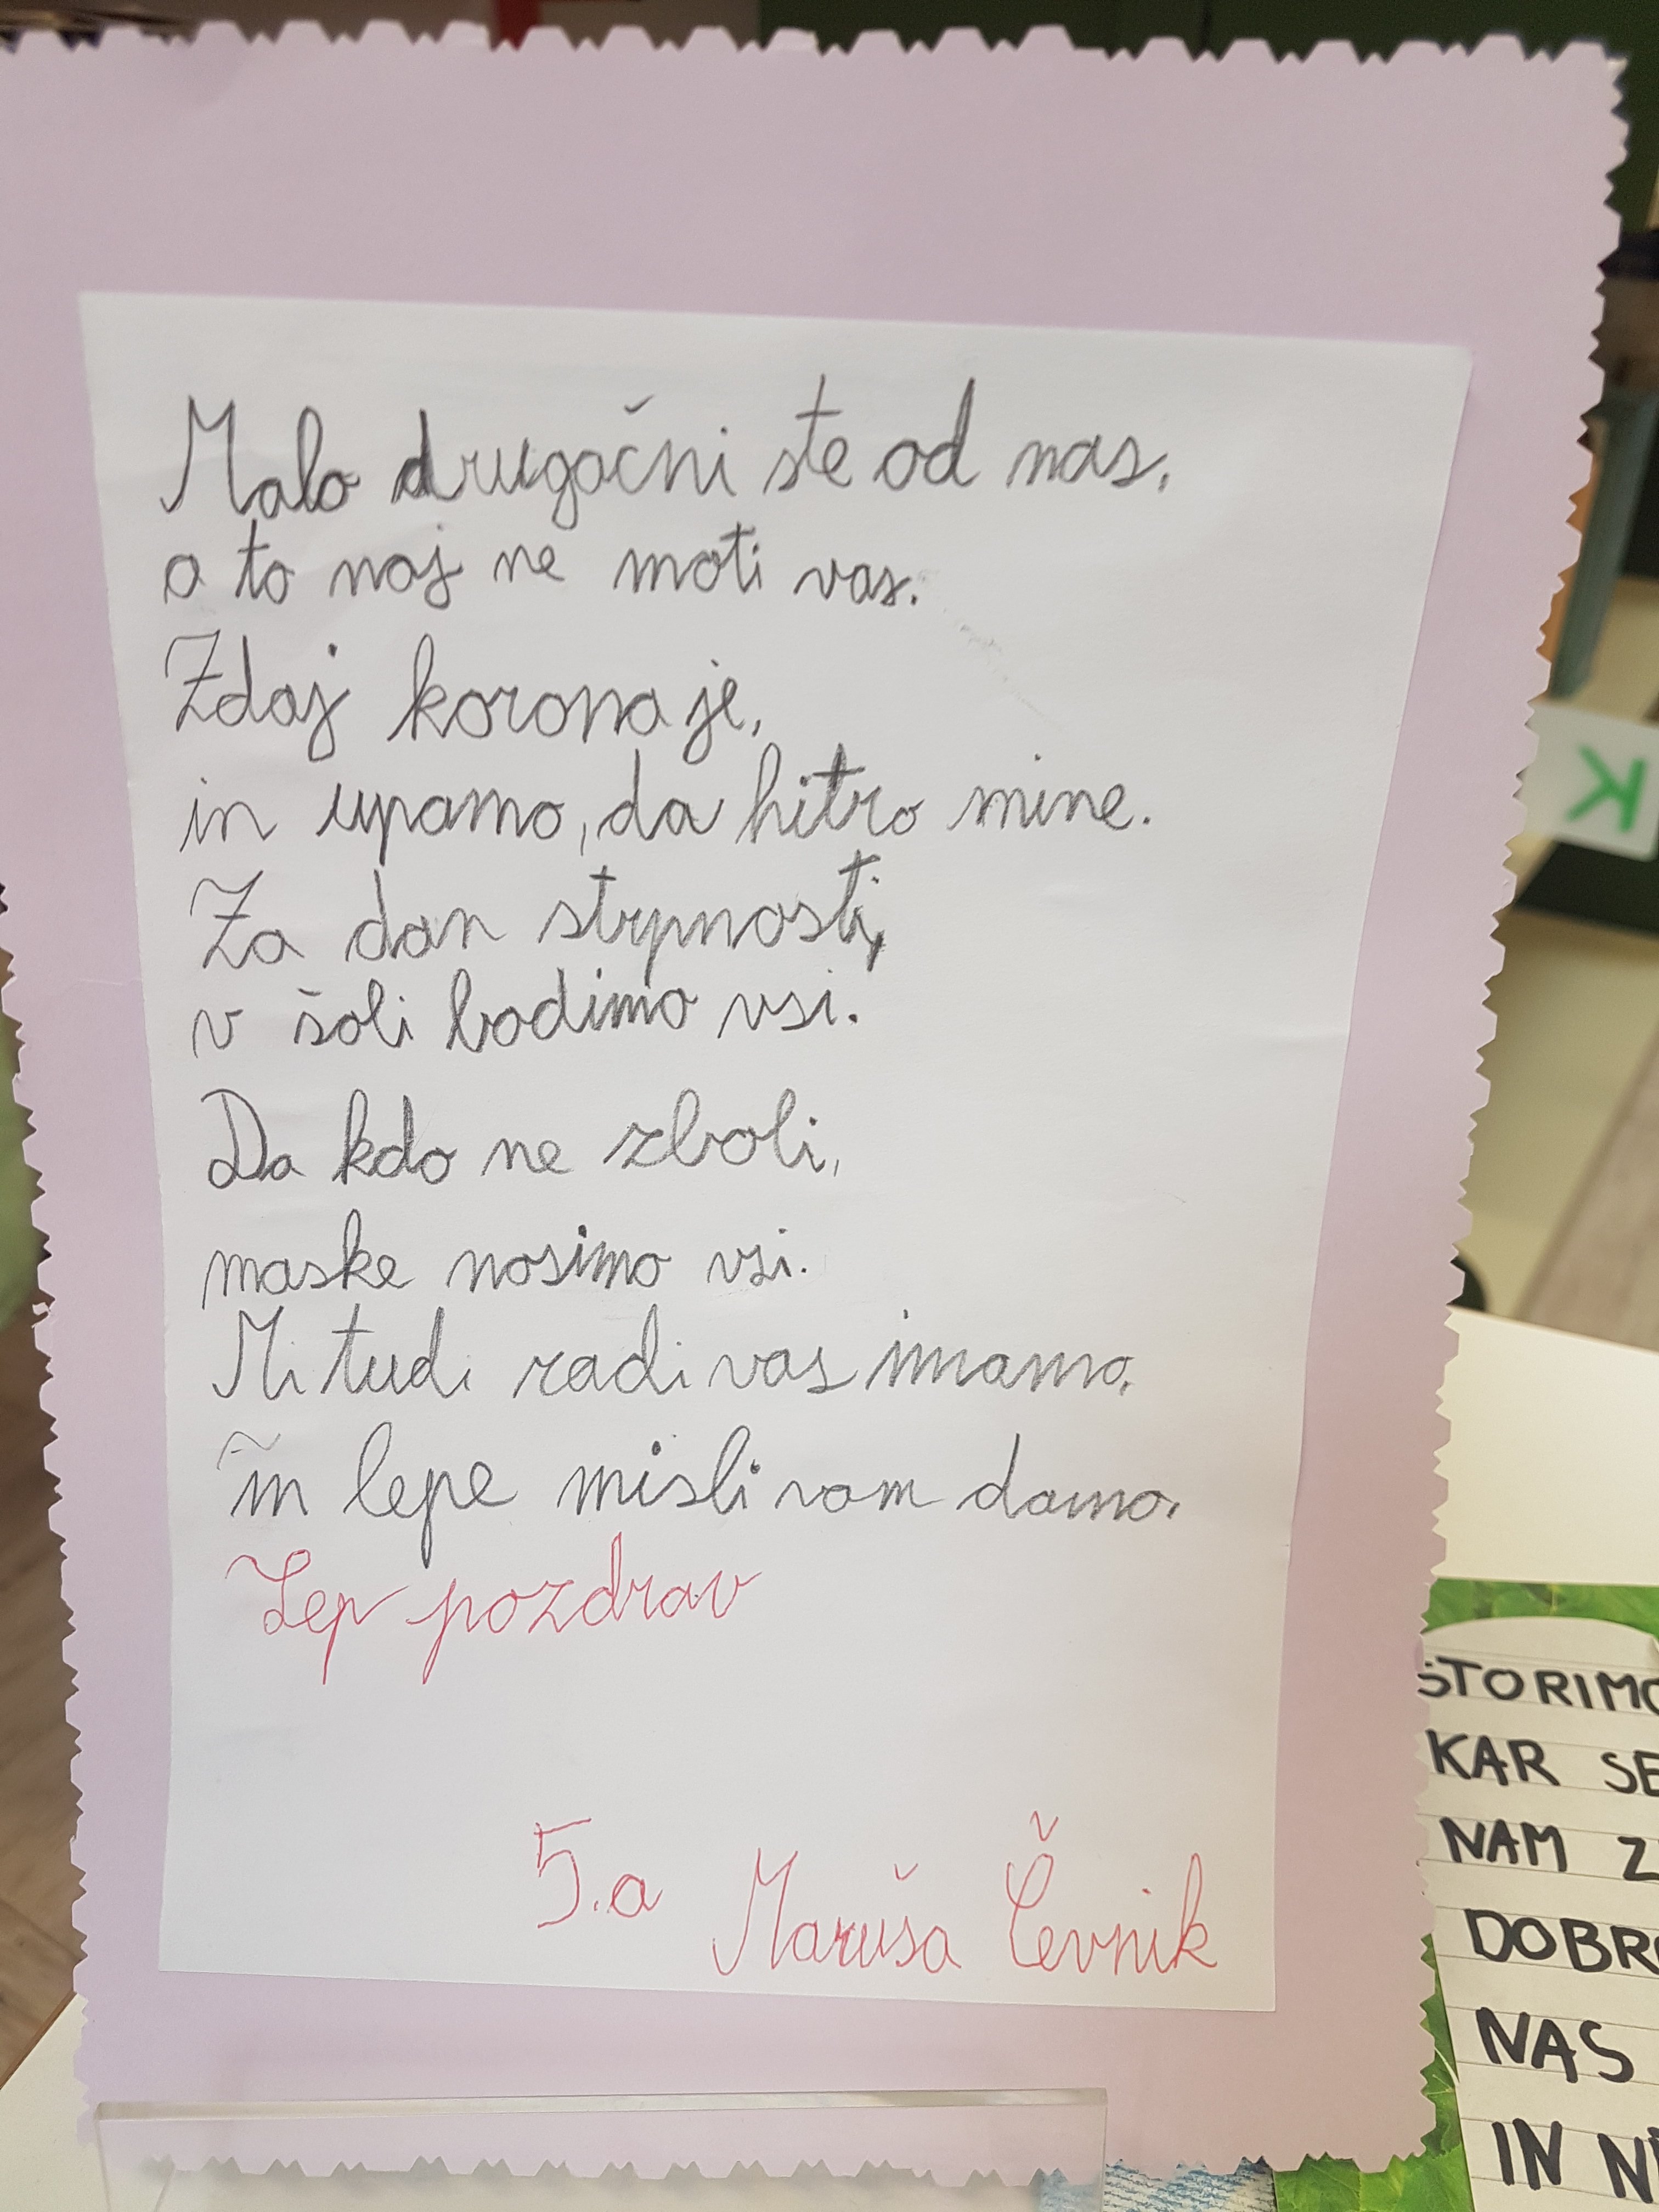 Malo drugačni ste od nas,
a to naj ne moti vas.
Zdaj korona je,
in upamo, da hitro mine.
Za dan strpnosti,
v šoli bodimo vsi.
Da kdo ne zboli,
maske nosimo vsi.
Mi tudi radi vas imamo,
in lepe misli vam damo.
Lep pozdrav
5.a Maruša Čevnik
K
STORIMO
KAR SE
NAM Z
DOBRO
NAS
IN NE